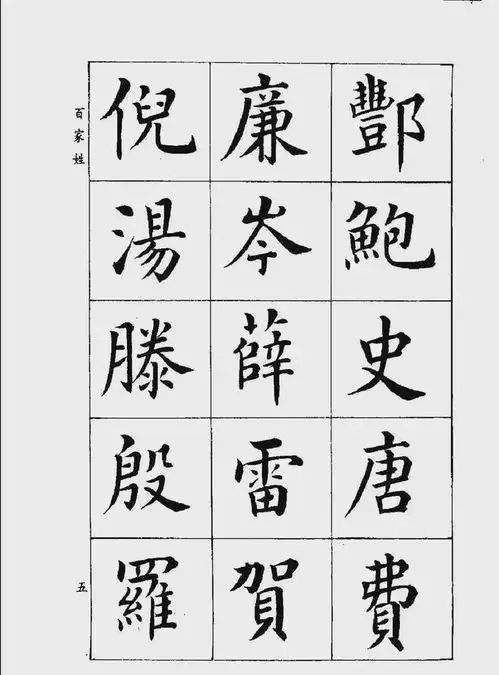 酆鮑史唐費
廉岑薛雷賀
倪湯滕殷羅
百家姓
五